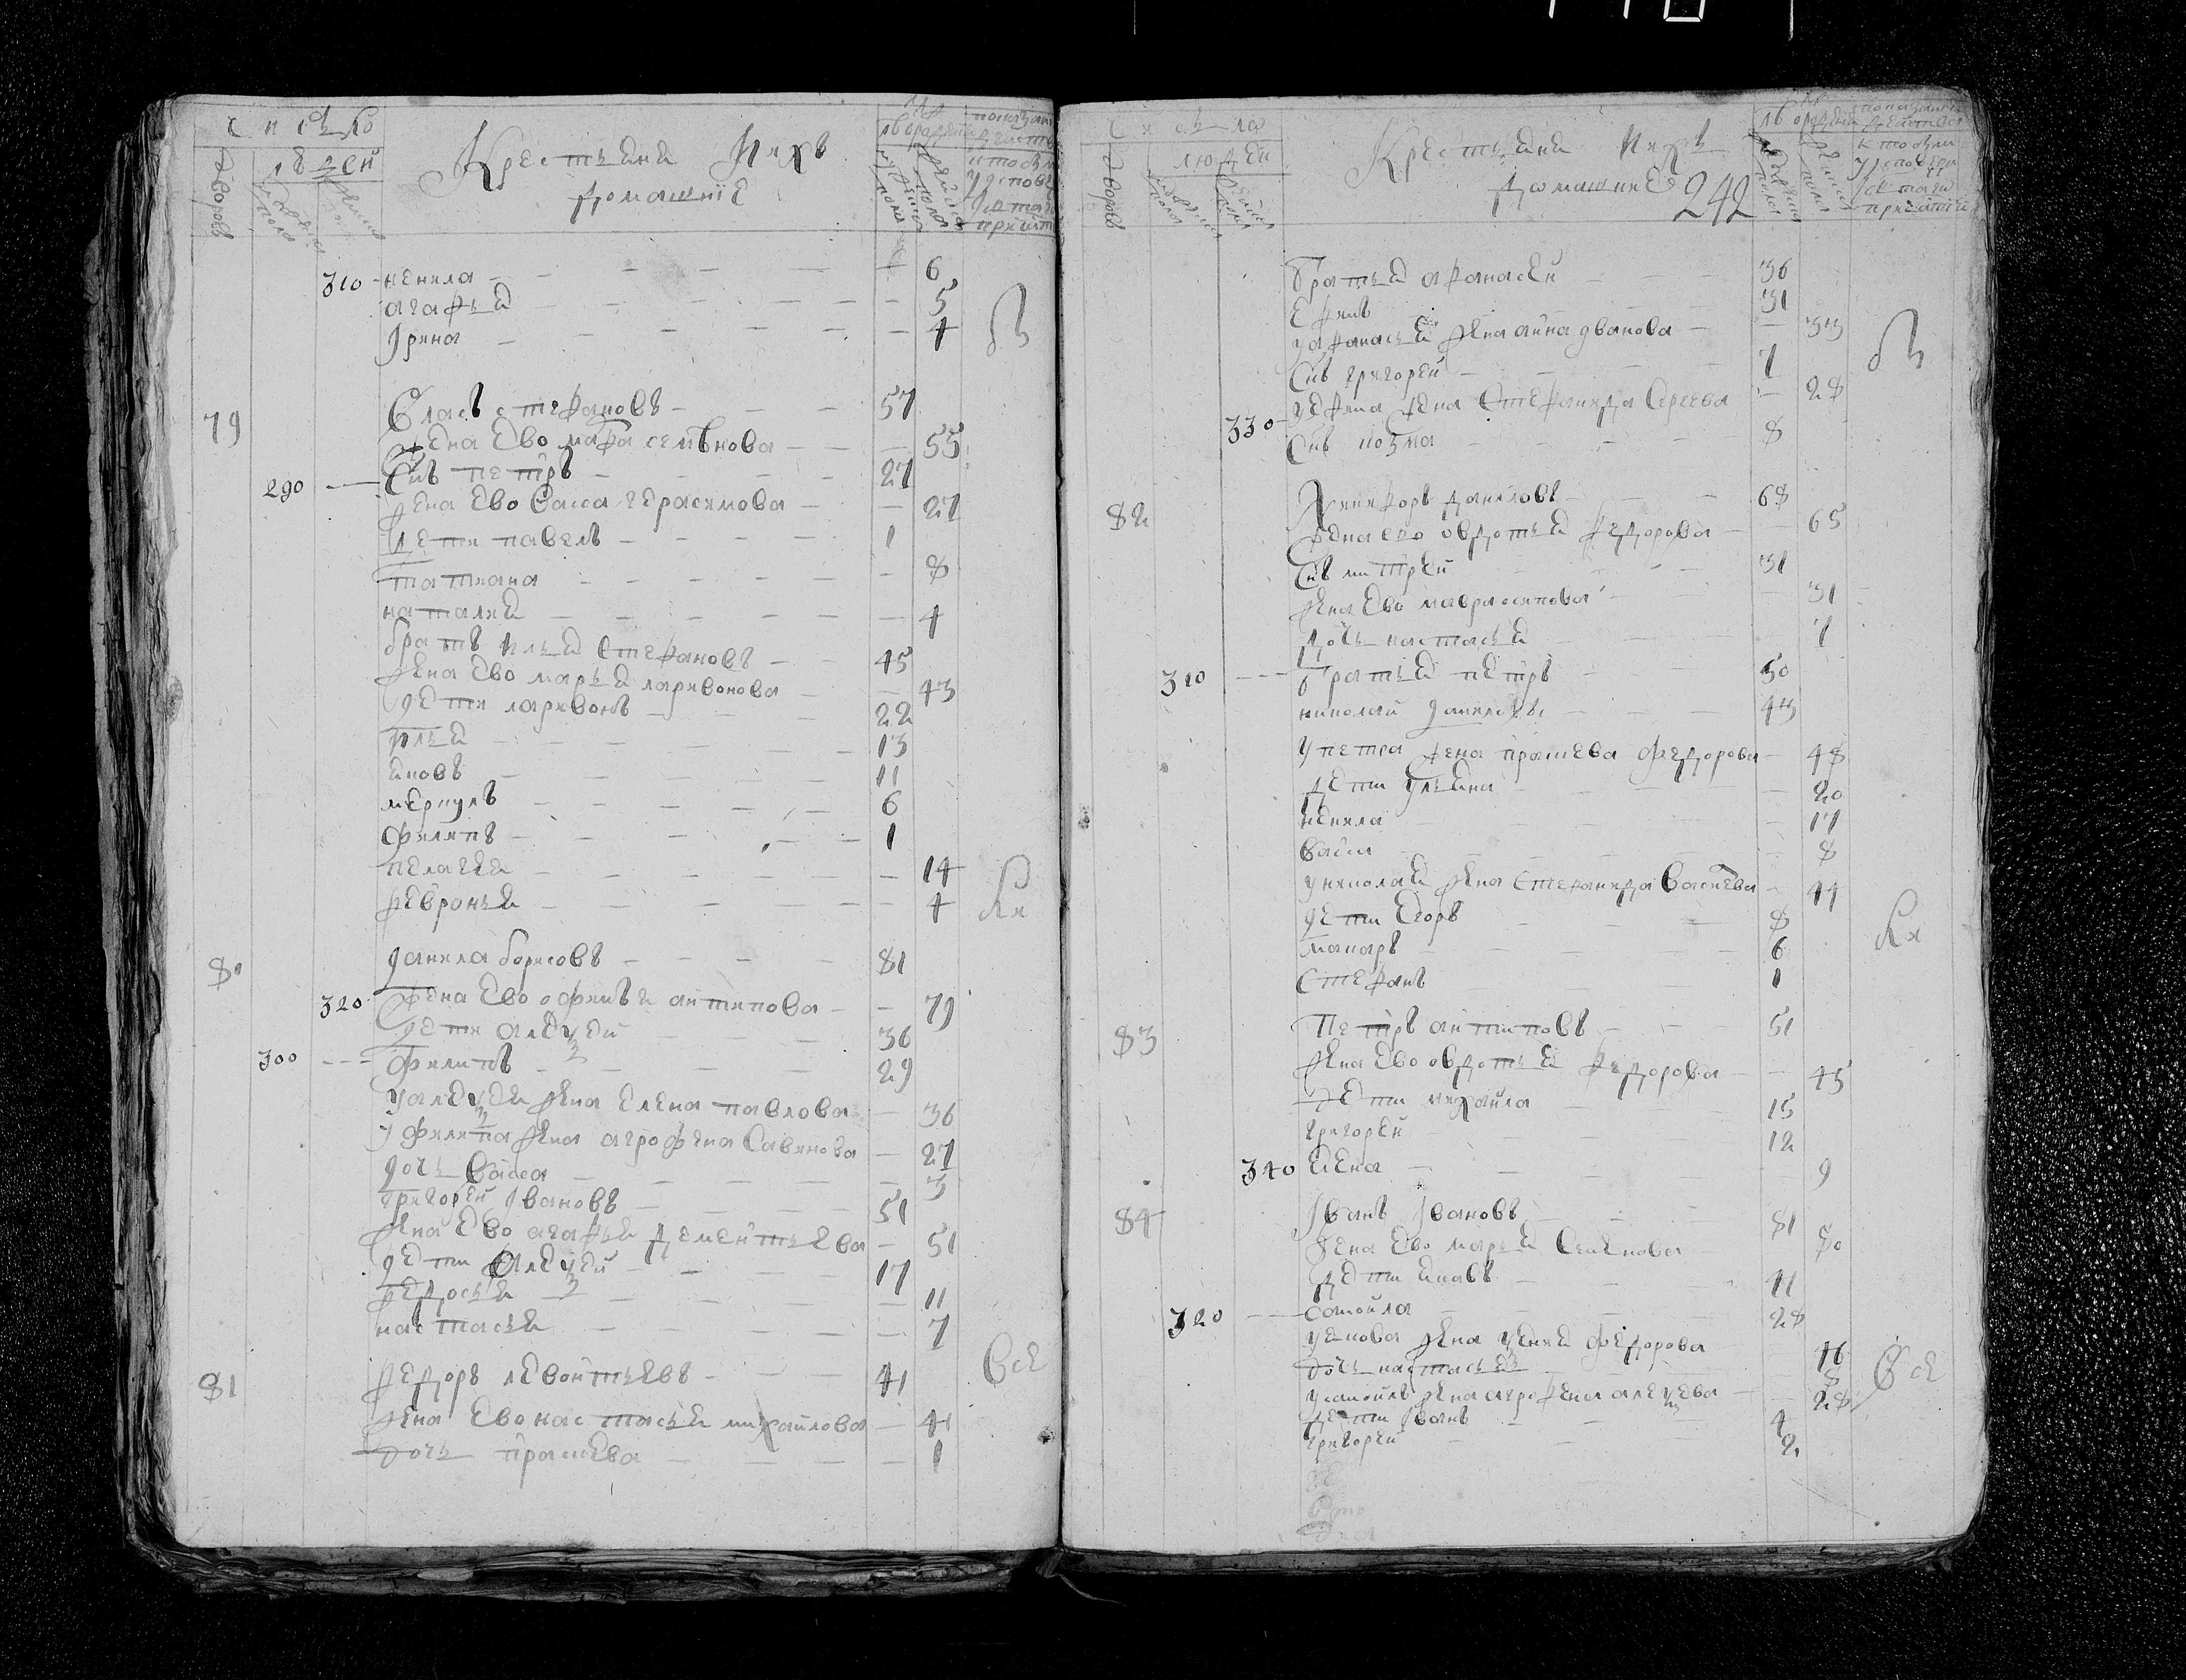 число
людей
дворовъ
Крестьяня ихъ
домашнїе
310 ненила 6
агафья 5
Iрина 4
79 Власъ стефановъ 57
жена ево марфа семѣнова 55
290 Снъ петръ 27
жена ево Васса герасимова 27
дети павелъ 1
татиана 8
наталия 4
братъ илья Стефановъ 45
жена ево марья ларивонова 43
дети ларивонъ 22
илья 13
яковъ 11
меркулъ 6
филипъ 1
пелагея 14
февронья 4
80 данила борисовъ 81
320 жена ево офимья антипова 79
дети алеѯей 36
300 Филипъ 29
У алеѯея жена елена павлова 36
У Филипа жена агрофена Савинова 27
дочь Васса 3
григорей Iвановъ 51
жена ево агафья дементьева 51
дети алеѯей 17
федосья 11
настасья 7
Все
81 федоръ левонтьевъ 41
жена ево настасья михайлова 41
дочь прасковья 1
число
людей
дворовъ
Крестьяня ихъ
домашние
242
братья афанасей 36
ефимъ 31
у афанасья жена анна Iванова 33
Снъ григорей 7
330 у ефима жена Стефанида Сергеева 28
Снъ козма 8
82 никифоръ даниловъ 68
жена ево овдотья федорова 65
Снъ митрей 31
жена ево мавра осипова 31
дочь настасья 7
310 братья петръ 50
николай даниловы 43
У петра жена прасковья Федорова 48
дети Ульяна 20
ненила 17
Васса 8
У николая жена Стефанида Васильева 44
дети егоръ 8
макаръ 6
Стефанъ 1
83 Петръ антиповъ 51
жена ево овдотья федорова 45
дети михайла 15
григорей 12
340 елена 9
84 Iванъ Iвановъ 81
жена ево марья Семенова 80
дети яковъ 41
320 самойла 28
У якова жена ѯения Федорова 46
дочь настасья 8
У самойлы жена агрофена алеѯеева 28
дети Iванъ 4
григорей 2
Все